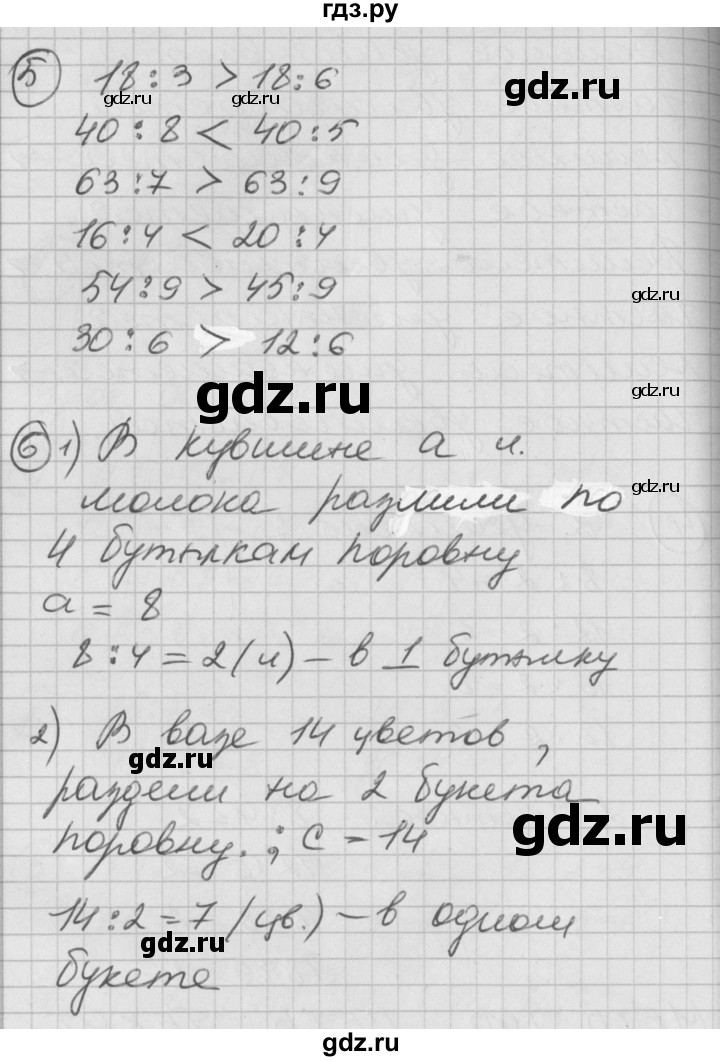 гдз.ру
5 18 : 3 > 18 : 6
gdz.ru gdz.ru gdz.ru
40 : 8 < 40 : 5
63 : 7 > 63 : 9
16 : 4 < 20 : 4
54 : 9 > 45 : 9
gdz.ru
30 : 6 > 12 : 6
gdz.ru gdz.ru
6 1) В кувшине а л.
молока разлили по
4 бутылкам поровну
а = 8
8 : 4 = 2 (л) – в 1 бутылку
2) В вазе 14 цветов,
gdz.ru
раздели на 2 букета
gdz.ru
поровну. ; С = 14
14 : 2 = 7 (цв.) – в одном
gdz.ru
букете
gdz.ru